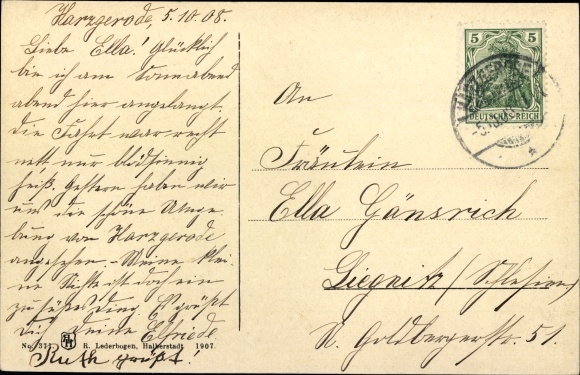 Harzgerode, 5.10.08.
Liebe Ella! Glücklich
bin ich am Sonnabend
abend hier angelangt.
Die Fahrt war recht
nett nur blödsinnig
heiß. Gestern haben wir
uns die schöne Umge-
bung von Harzgerode
angesehen. Meine klei-
ne Nichte ist doch ein
zu süßes Ding. Es grüßt
Dich Deine Elfriede
Ruth grüßt!
No. 311. R. Lederbogen, Halberstadt 1907
5 5
DEUTSCHES REICH
HARZGERODE
An
Fräulein
Ella Gänsrich
Liegnitz (Schlesien)
N. Goldbergerstr. 51.